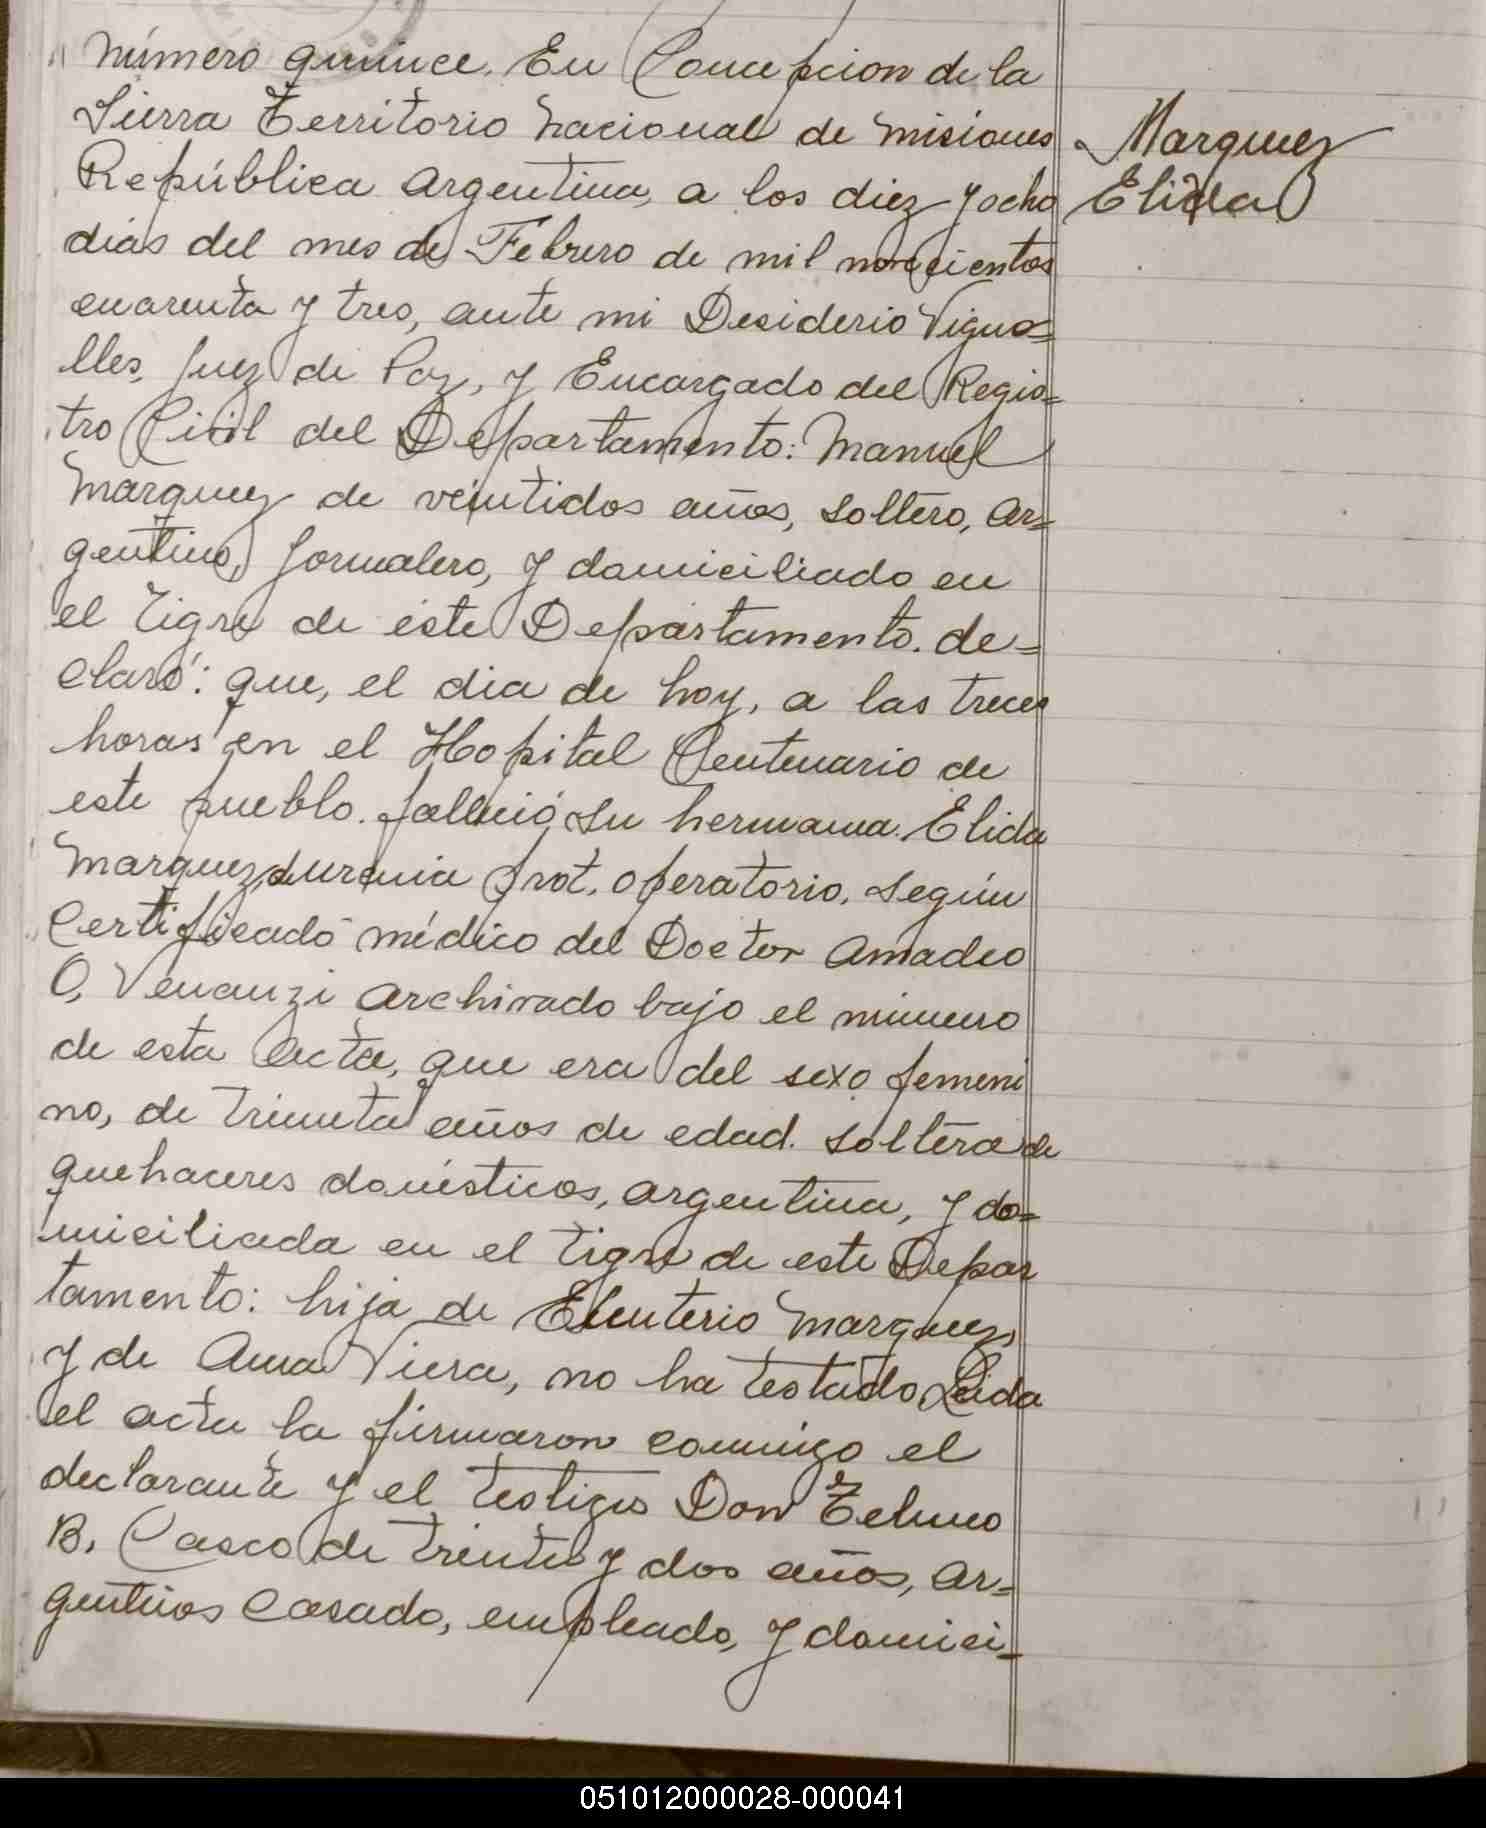 Número quince. En Concepcion de la
Sierra Territorio Nacional de Misiones
República Argentina, a los diez y ocho
dias del mes de Febrero de mil novecientos
cuarenta y tres, ante mi Desiderio Vigna=
lles, Juez de Paz, y Encargado del Regis=
tro Civil del Departamento: Manuel
Marquez de veintidos años, soltero, Ar=
gentino, jornalero, y domiciliado en
el Tigre de este Departamento. de=
claró: que, el dia de hoy, a las trece
horas en el Hopital Centenario de
este pueblo. falleció su hermana. Elida
Marquez, de uremia prot. operatorio, según
Certificado médico del Doctor Amadeo
O. Venanzi archivado bajo el número
de esta acta, que era del sexo femeni
no, de treinta años de edad. soltera de
quehaceres domésticos, argentina, y do=
miciliada en el Tigre de este Depar
tamento: hija de Eleuterio Marquez,
y de Ana Viera, no ha testado. Leida
el acta la firmaron conmigo el
declarante y el testigo Don Telmo
B. Casco de treinta y dos años, ar=
gentino casado, empleado, y domici=
Marquez
Elida
051012000028-000041